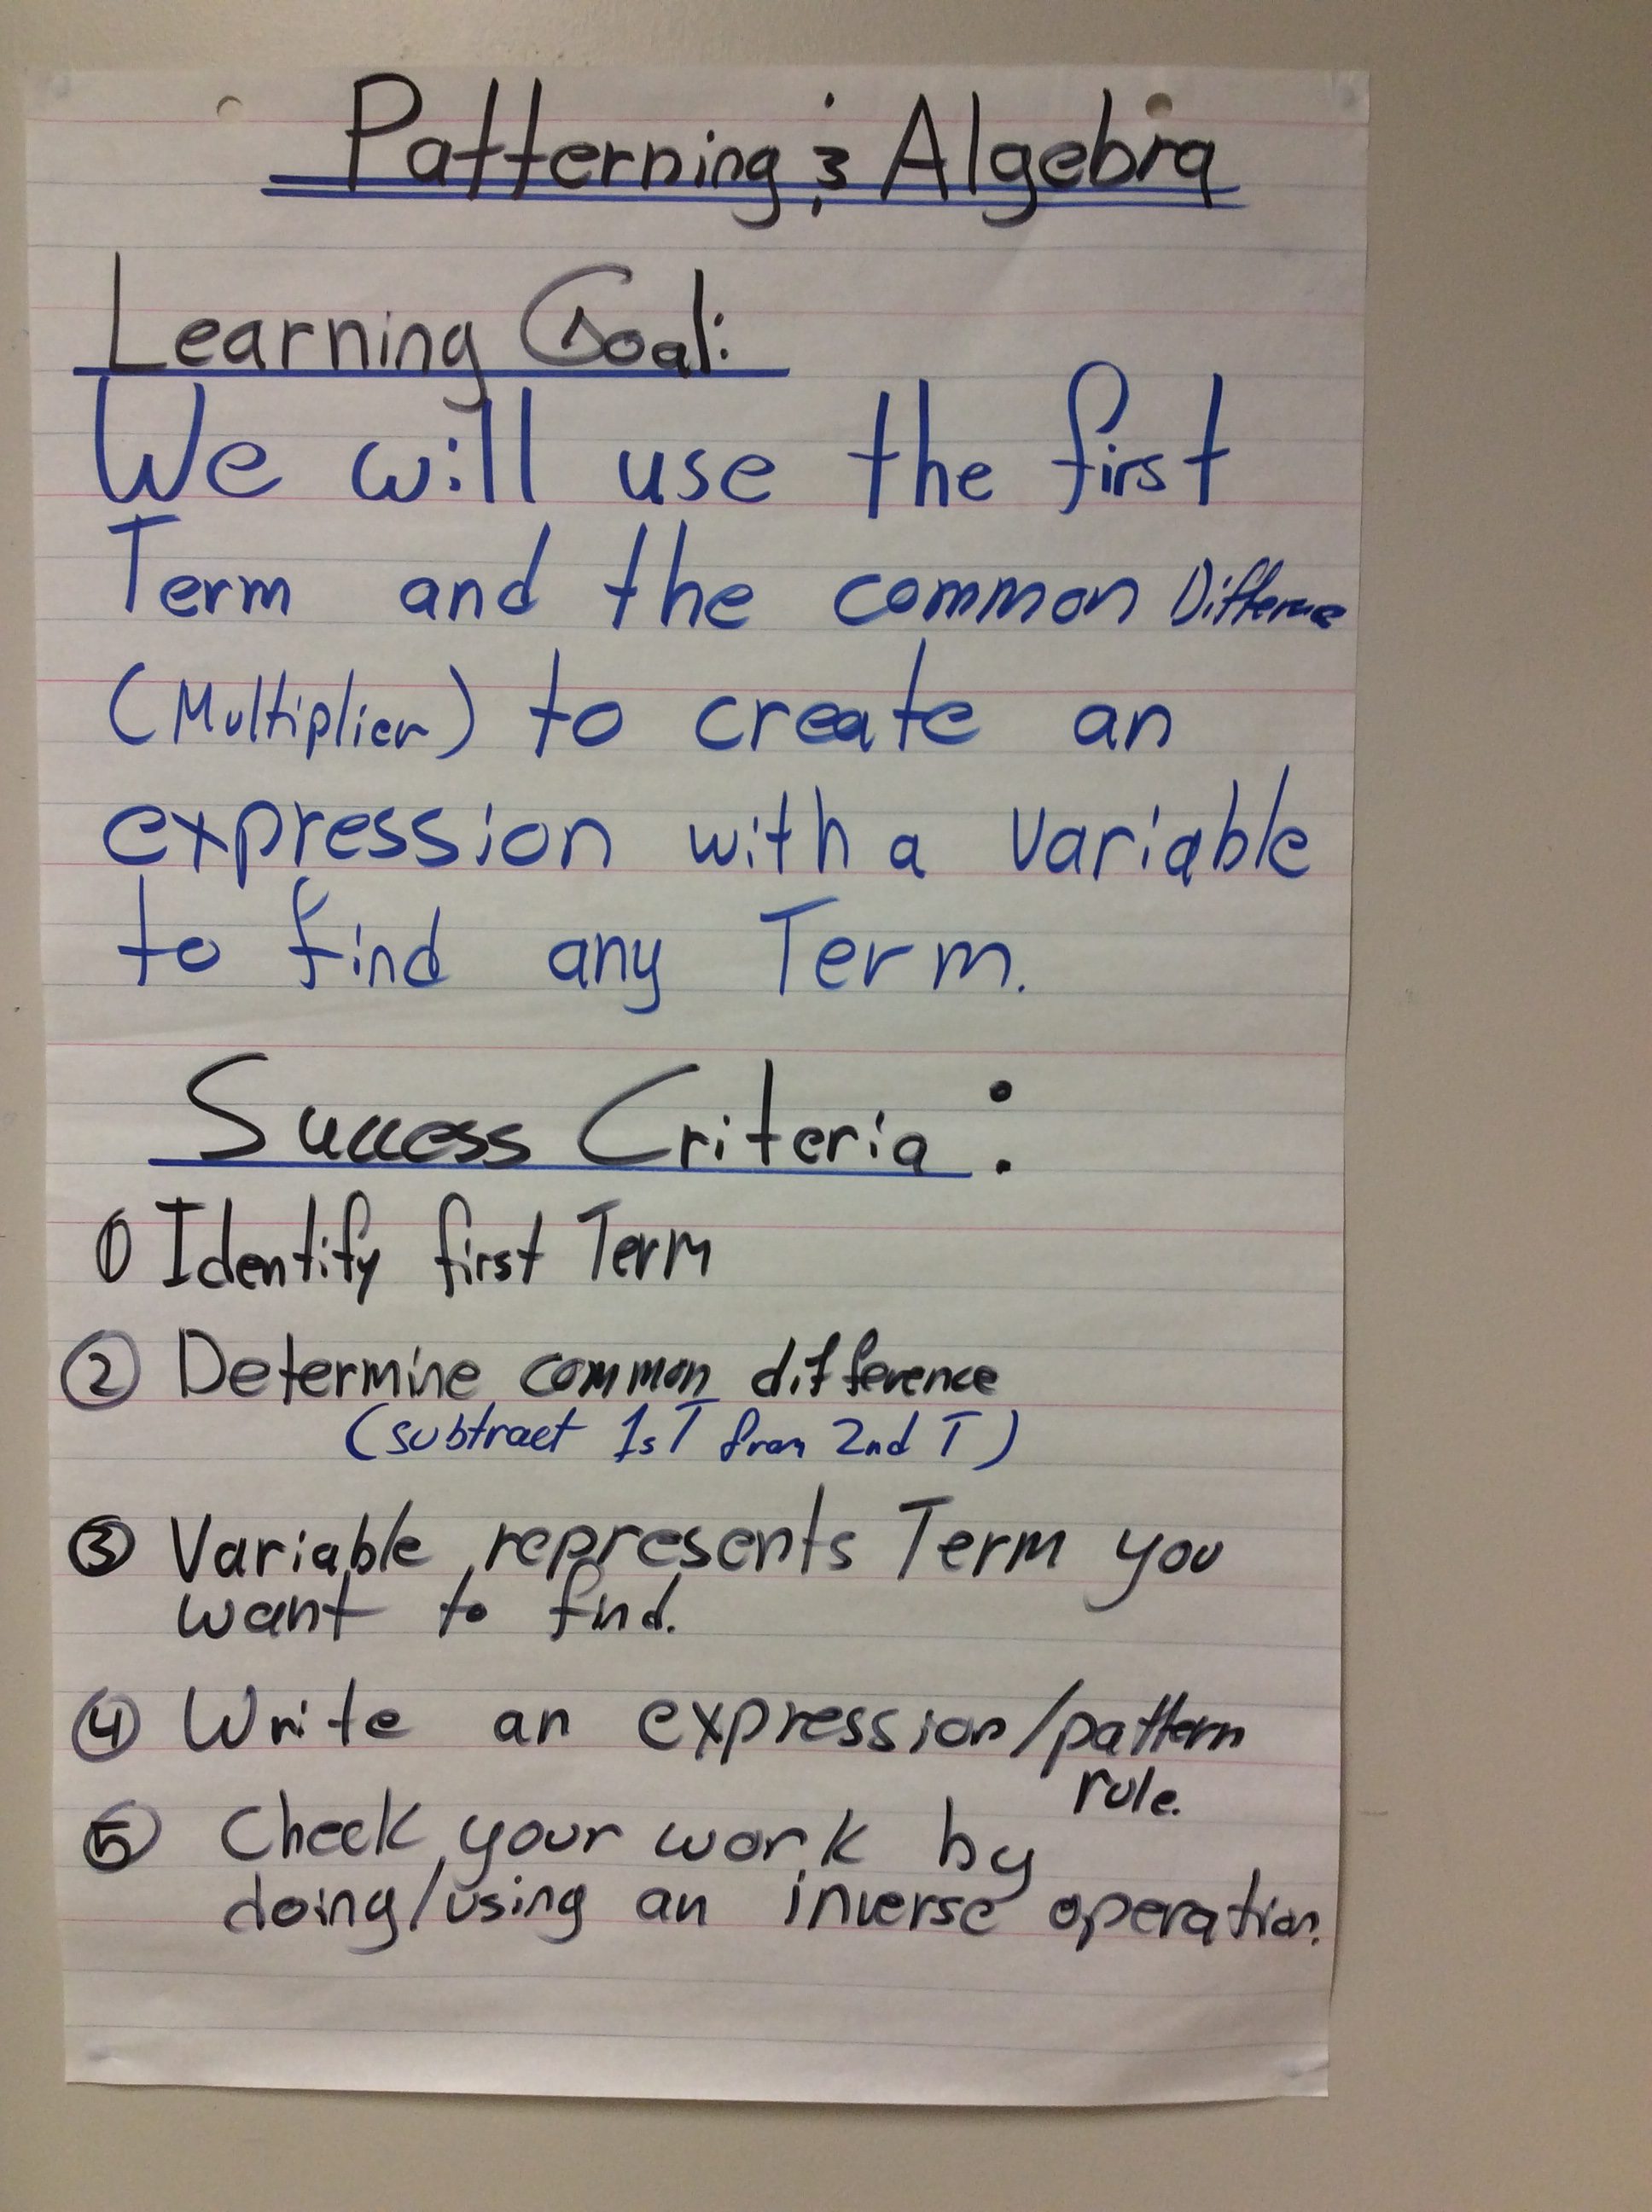 Patterning & Algebra
Learning Goal:
We will use the first
Term and the common Difference
(Multiplier) to create an
expression with a variable
to find any Term.
Success Criteria:
① Identify first Term
② Determine common difference
(subtract 1sT from 2nd T)
③ Variable represents Term you
want to find.
④ Write an expression/pattern
rule.
⑤ Check your work by
doing/using an inverse operation.